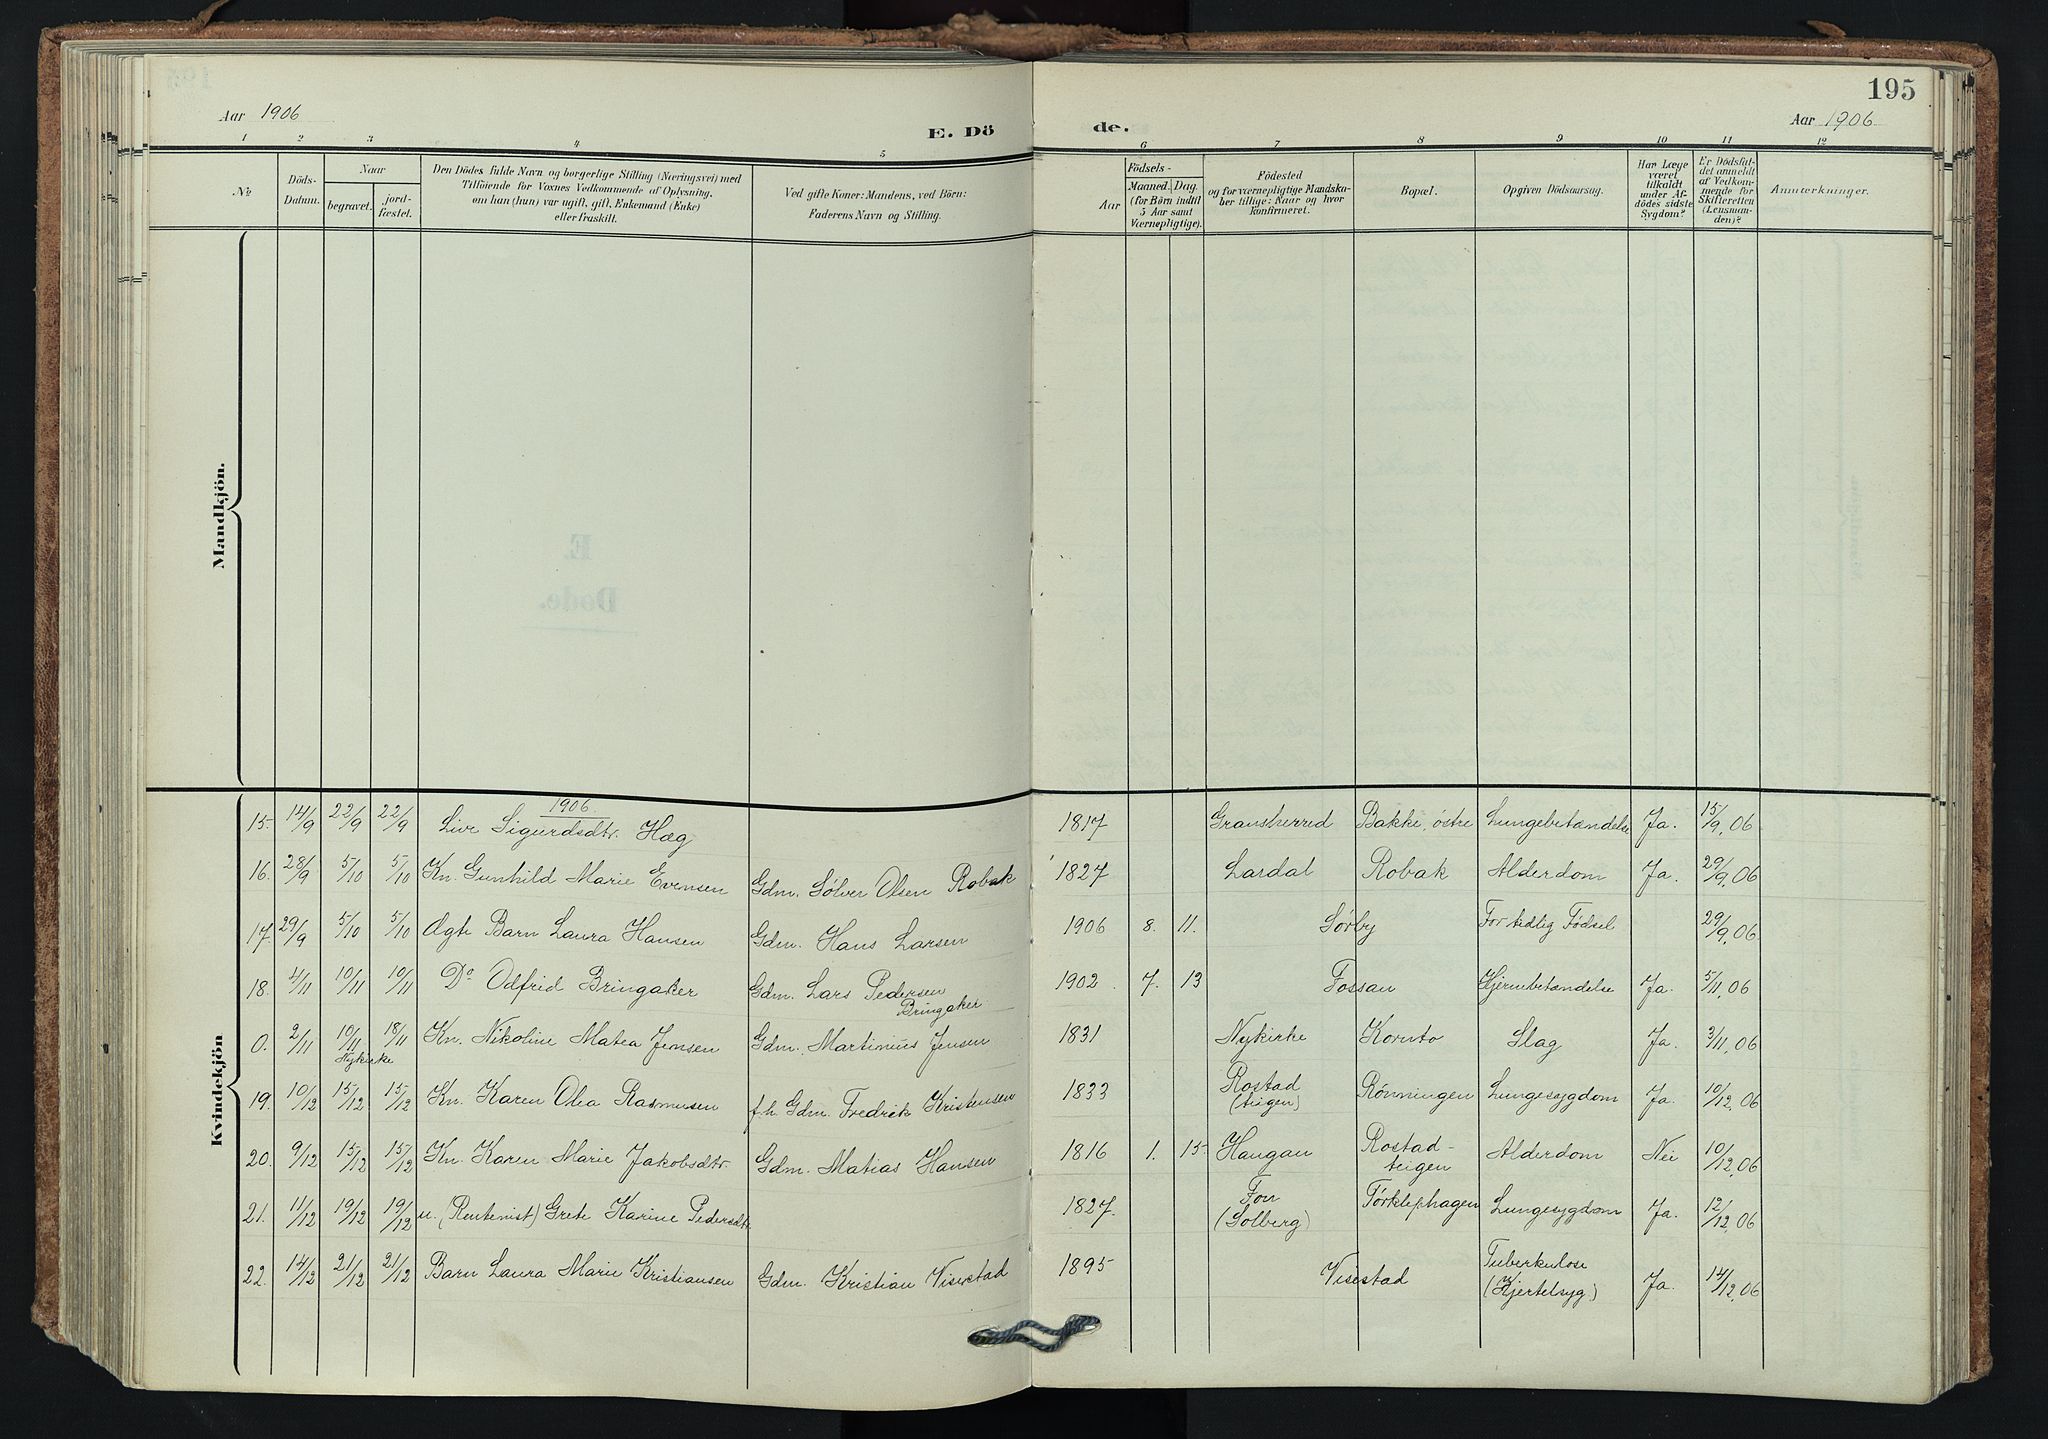 195
Aar 1906
E. Dö
de.
Aar 1906
1 2 3 4 5 6 7 8 9 10 11 12
No
Döds-Datum.
Naar
begravet.
jord-fæstet.
Den Dödes fulde Navn og borgerlige Stilling (Næringsvei) med
Tilföiende for Voxnes Vedkommende af Oplysning,
om han (hun) var ugift, gift, Enkemand (Enke)
eller fraskilt.
Ved gifte Koner: Mandens, ved Börn:
Faderens Navn og Stilling.
Födsels-
Aar
Maaned. Dag.
(for Börn indtil
5 Aar samt
Værnepligtige).
Födested
og for værnepligtige Mandska-
ber tillige: Naar og hvor
konfirmeret.
Bopæl.
Opgiven Dödsaarsag.
Har Læge
været
tilkaldt
under Af-
dödes sidste
Sygdom?
Er Dödsfal-
det anmeldt
af Vedkom-
mende for
Skifteretten
(Lensman-
den)?
Anmærkninger.
Mandkjön.
Kvindekjön
1906
15. 14/9 22/9 22/9 Live Sigurdsdtr. Hæg 1817 Gransherred Bakke, östre Lungebetændelse Ja. 15/9.06
16. 28/9 5/10 5/10 Kn. Gunhild Marie Evensen Gdm. Sølver Olsen Robak 1827 Lardal Robak Alderdom Ja. 29/9.06
17. 29/9 5/10 5/10 Ægte Barn Laura Hansen Gdm. Hans Larsen 1906 8. 11. Sørby For tidlig Fødsel 29/9.06
18. 4/11 10/11 10/11 Do Odfrid Bringaker Gdm. Lars Pedersen Bringaker 1902 7. 13 Fossan Hjernebetændelse Ja. 5/11.06
0. 2/11 10/11 Nykirke 18/11 Kn. Nikoline Matea Jensen Gdm. Martinius Jensen 1831 Nykirke Kornto Slag Ja. 3/11.06
19. 10/12 15/12 15/12 Kn. Karen Olea Rasmusen f.h. Gdm. Fredrik Kristensen 1833 Rostad (teigen) Rönningen Lungesygdom Ja. 10/12.06
20. 9/12 15/12 15/12 Kn. Karen Marie Jakobsdtr. Gdm. Matias Hansen 1816 1. 15. Haugan Rostad-teigen Alderdom Nei 10/12.06
21. 11/12 19/12 19/12 u. (Rentenist) Grete Karine Pedersdtr. 1827. Fon (Solberg) Tørklephagen Lungesygdom Ja. 12/12.06
22. 14/12 21/12 21/12 Barn Laura Marie Kristiansen Gdm. Kristian Visestad 1895 Visestad Tuberkulose (Kjertelsyg) Ja. 14/12.06
E.
Døde.